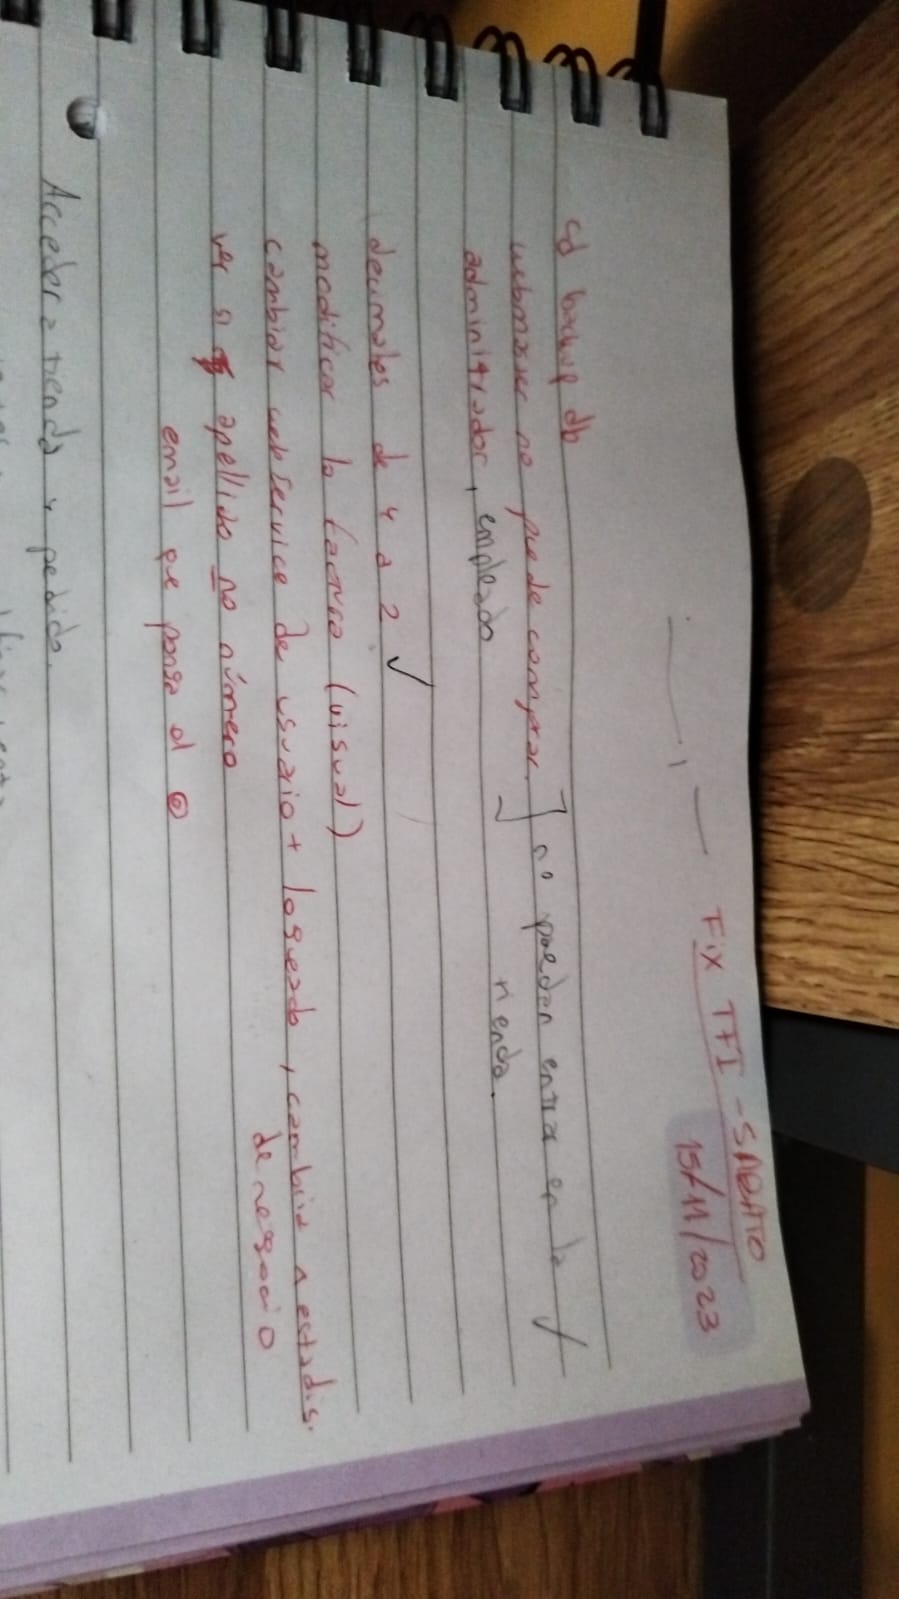 Fix TFI - SABATO
15/11/2023
sd backup db
webmaster no puede comprar. ] no pueden entrar en la ✓
administrador, empleado tienda.
decimales de 4 a 2 ✓
modificar la factura (visual)
cambiar webservice de usuario + logueado, cambiar a estadis.
de negocio
ver si apellido no número
email que ponga el @
Acceder a tienda y pedido.